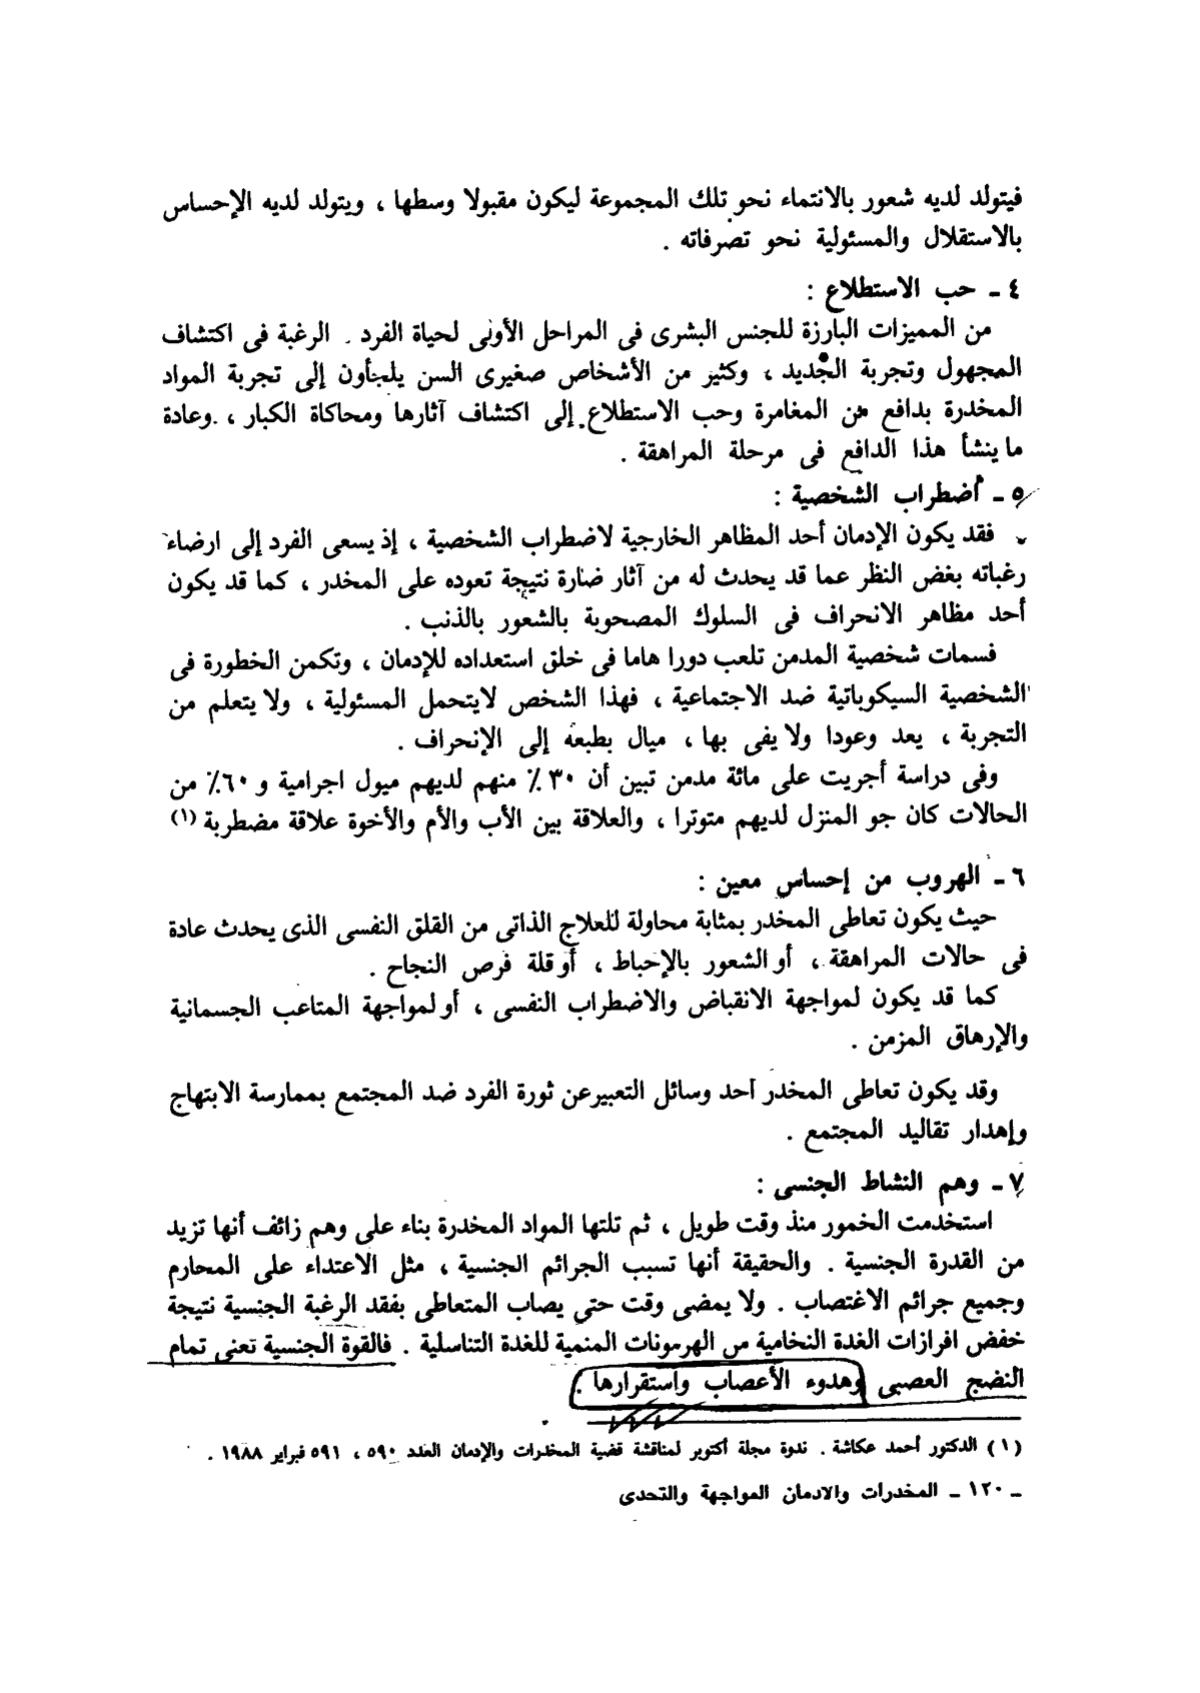 فيتولد لديه شعور بالانتماء نحو تلك المجموعة ليكون مقبولا وسطها ، ويتولد لديه الإحساس
بالاستقلال والمسئولية نحو تصرفاته .
٤ ـ حب الاستطلاع :
من المميزات البارزة للجنس البشرى فى المراحل الأولى لحياة الفرد . الرغبة فى اكتشاف
المجهول وتجربة الجديد ، وكثير من الأشخاص صغيرى السن يلجأون إلى تجربة المواد
المخدرة بدافع من المغامرة وحب الاستطلاع إلى اكتشاف آثارها ومحاكاة الكبار ، وعادة
ما ينشأ هذا الدافع فى مرحلة المراهقة .
٥ ـ أضطراب الشخصية :
فقد يكون الإدمان أحد المظاهر الخارجية لاضطراب الشخصية ، إذ يسعى الفرد إلى ارضاء
رغباته بغض النظر عما قد يحدث له من آثار ضارة نتيجة تعوده على المخدر ، كما قد يكون
أحد مظاهر الانحراف فى السلوك المصحوبة بالشعور بالذنب .
فسمات شخصية المدمن تلعب دورا هاما فى خلق استعداده للإدمان ، وتكمن الخطورة فى
الشخصية السيكوباتية ضد الاجتماعية ، فهذا الشخص لايتحمل المسئولية ، ولا يتعلم من
التجربة ، يعد وعودا ولا يفى بها ، ميال بطبعه إلى الإنحراف .
وفى دراسة أجريت على مائة مدمن تبين أن ٣٠ ٪ منهم لديهم ميول اجرامية و ٦٠٪ من
الحالات كان جو المنزل لديهم متوترا ، والعلاقة بين الأب والأم والأخوة علاقة مضطربة (١)
٦ ـ الهروب من إحساس معين :
حيث يكون تعاطى المخدر بمثابة محاولة للعلاج الذاتى من القلق النفسى الذى يحدث عادة
فى حالات المراهقة ، أو الشعور بالإحباط ، أو قلة فرص النجاح .
كما قد يكون لمواجهة الانقباض والاضطراب النفسى ، أو لمواجهة المتاعب الجسمانية
والإرهاق المزمن .
وقد يكون تعاطى المخدر أحد وسائل التعبير عن ثورة الفرد ضد المجتمع بممارسة الابتهاج
وإهدار تقاليد المجتمع .
٧ ـ وهم النشاط الجنسى :
استخدمت الخمور منذ وقت طويل ، ثم تلتها المواد المخدرة بناء على وهم زائف أنها تزيد
من القدرة الجنسية . والحقيقة أنها تسبب الجرائم الجنسية ، مثل الاعتداء على المحارم
وجميع جرائم الاغتصاب . ولا يمضى وقت حتى يصاب المتعاطى بفقد الرغبة الجنسية نتيجة
خفض افرازات الغدة النخامية من الهرمونات المنمية للغدة التناسلية . فالقوة الجنسية تعنى تمام
النضج العصبى وهدوء الأعصاب واستقرارها .
(١) الدكتور أحمد عكاشة . ندوة مجلة أكتوبر لمناقشة قضية المخدرات والإدمان العدد ٥٩٠ ، ٥٩١ فبراير ١٩٨٨ .
ـ ١٢٠ ـ المخدرات والادمان المواجهة والتحدى